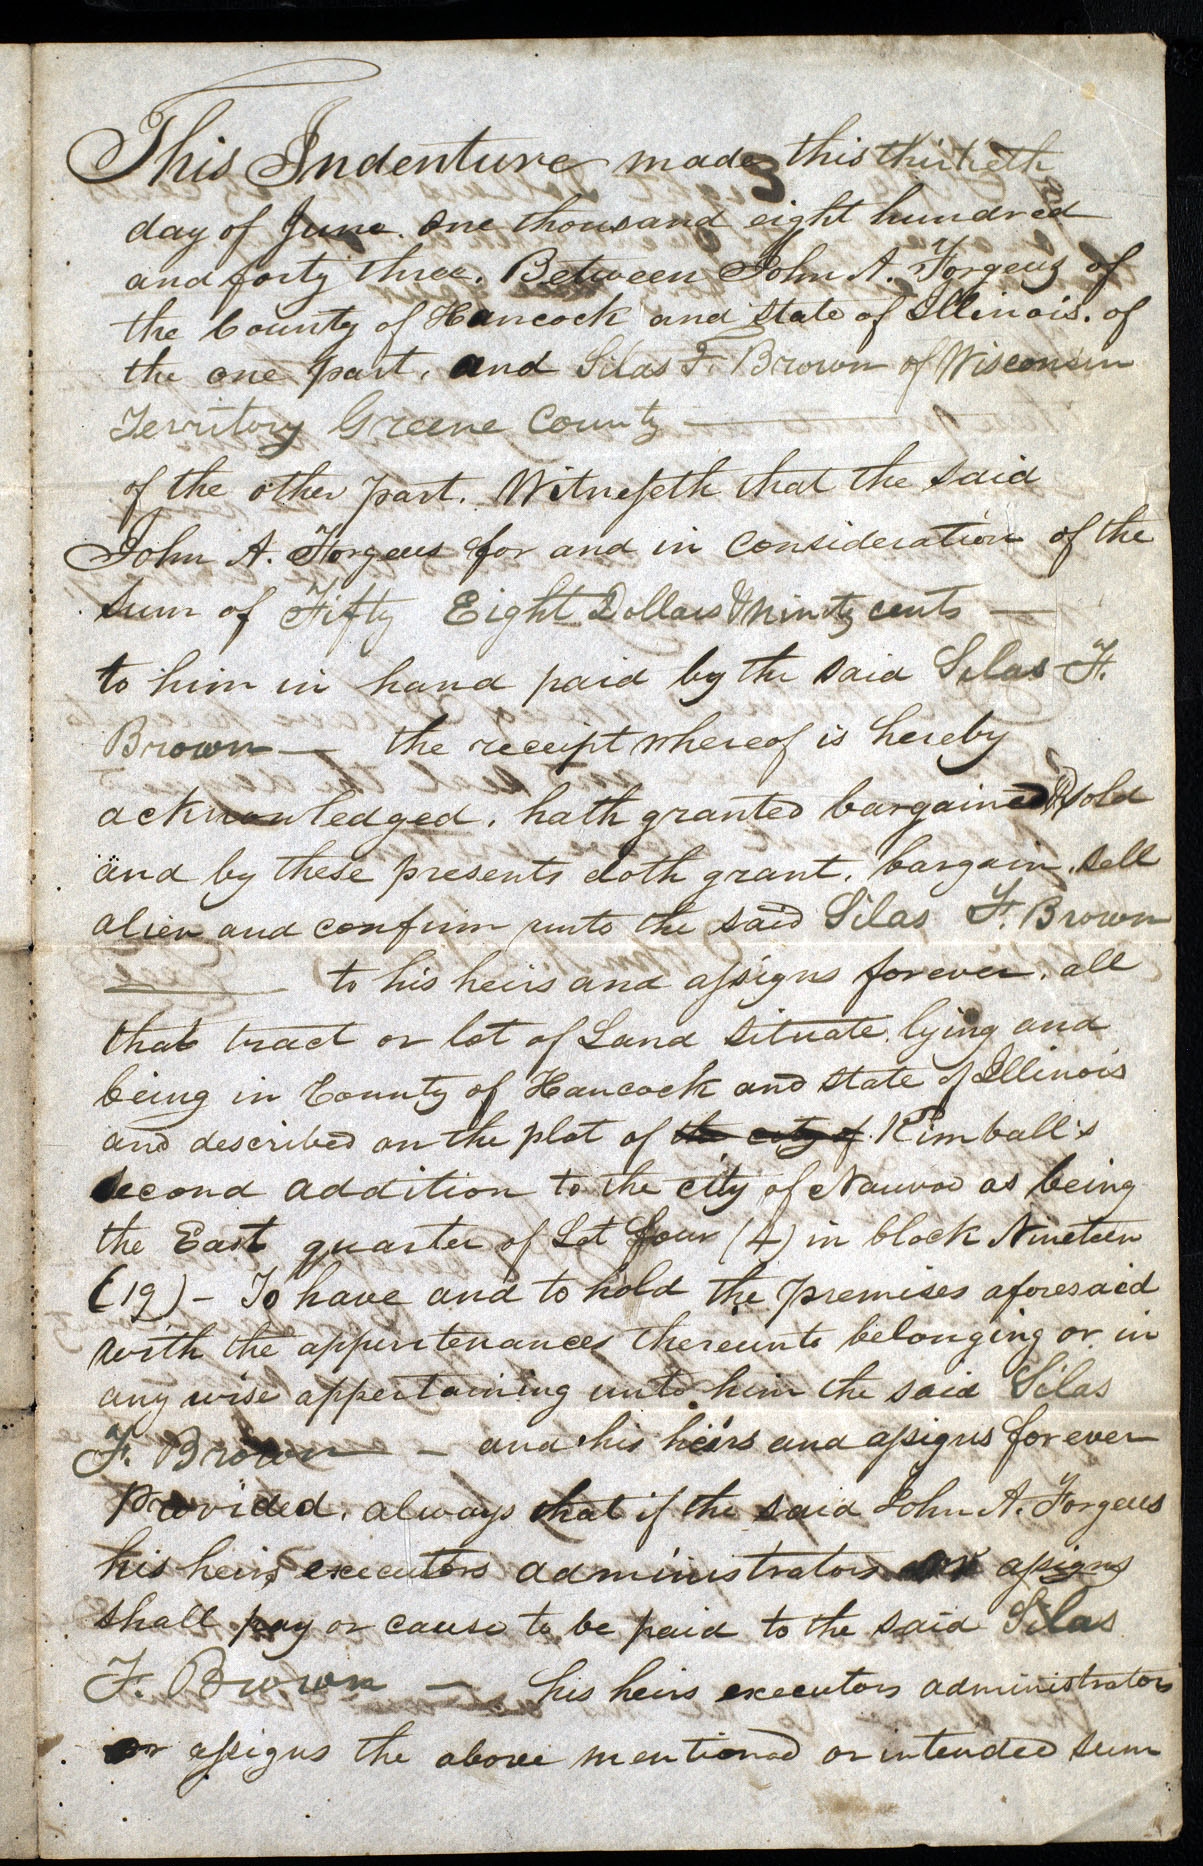 This Indenture made this thirtieth
day of June. one thousand eight hundred
and forty three. Between John A. Forgeus of
the County of Hancock and state of Illinois. of
the one part. and Silas F. Brown of Wisconsin
Territory Greene County —
of the other part. Witnesseth that the said
John A. Forgeus for and in consideration of the
sum of Fifty Eight Dollars & ninety cents —
to him in hand paid by the said Silas F.
Brown — the receipt whereof is hereby
acknowledged. hath granted bargained & sold
and by these presents doth grant. bargain. sell
alien and confirm unto the said Silas F. Brown
— to his heirs and assigns forever. all
that tract or lot of Land situate lying and
being in County of Hancock and state of Illinois
and described on the plot of the city of Kimball's
second addition to the city of Nauvoo as being
the East quarter of Lot four (4) in block Nineteen
(19) – To have and to hold the premises aforesaid
with the appurtenances thereunto belonging or in
any wise appertaining unto him the said Silas
F. Brown — and his heirs and assigns for ever
Provided. always that if the said John A. Forgeus
his heirs executors administrators or assigns
shall pay or cause to be paid to the said Silas
F. Brown — his heirs executors administrators
or assigns the above mentioned or intended sum